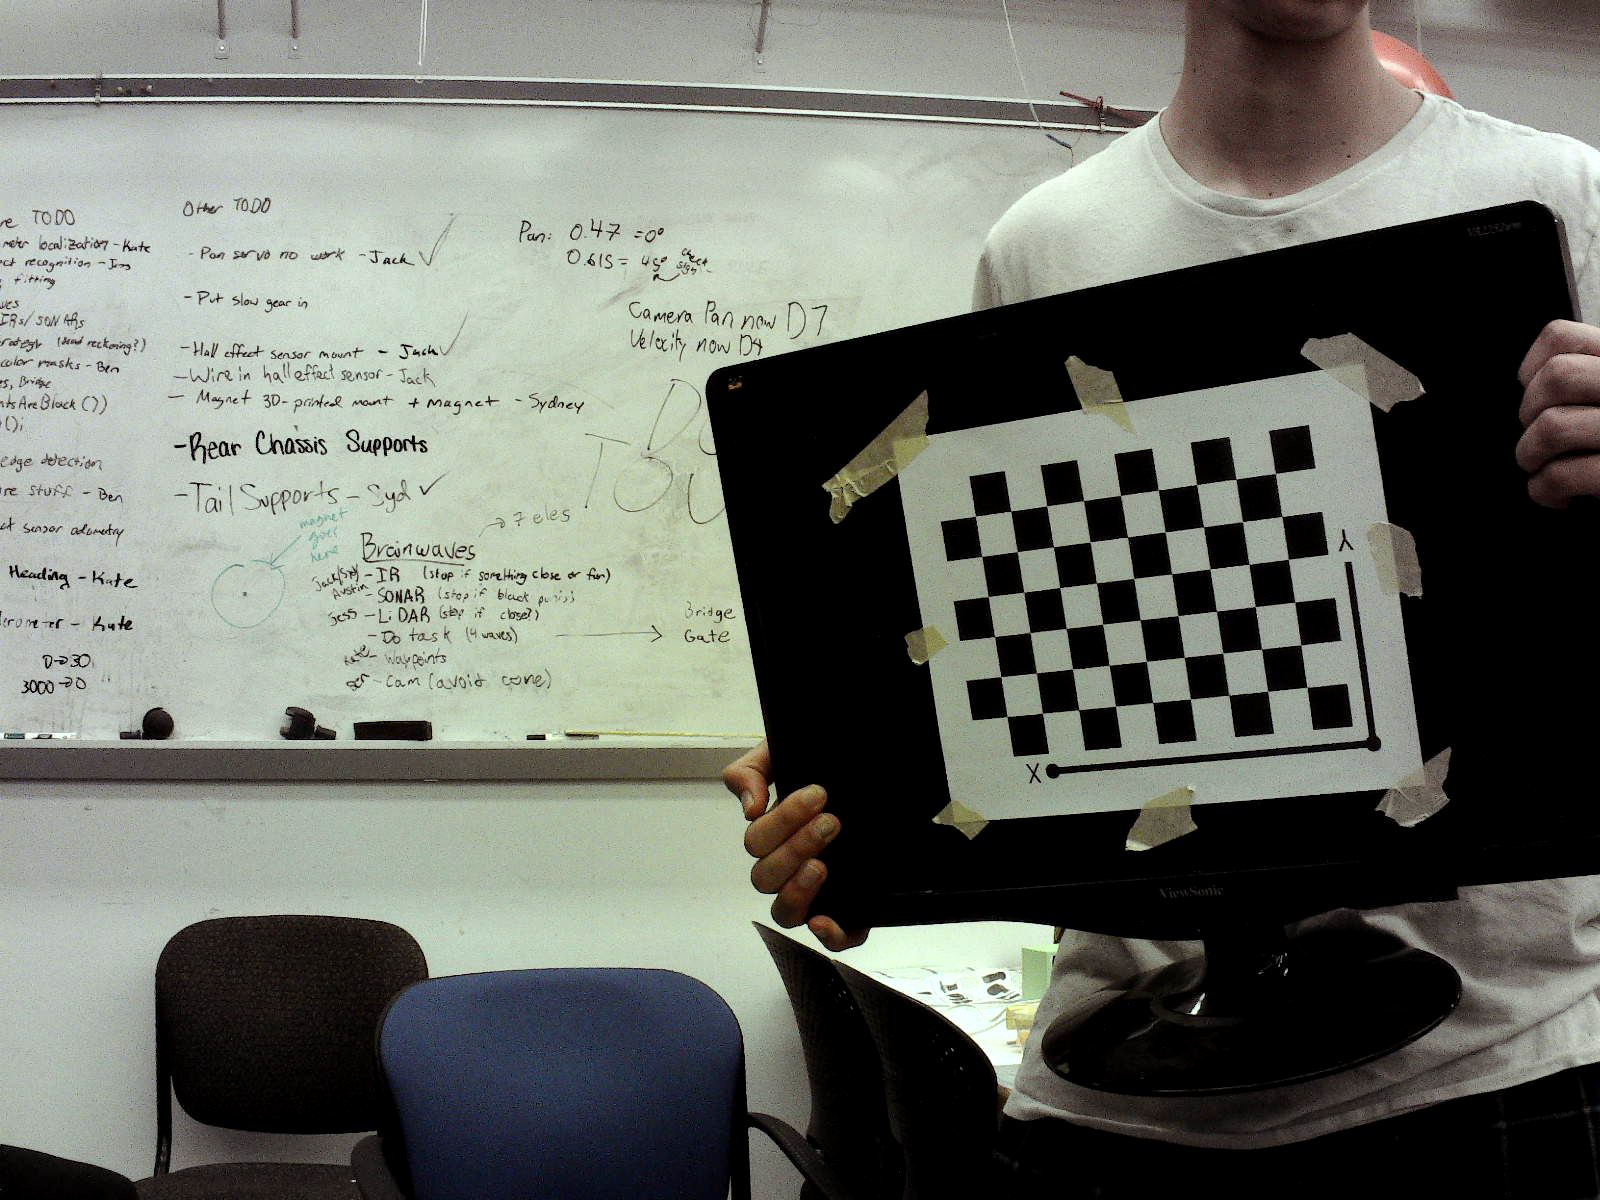 TODO
localization - Kate
recognition -
fitting
IRs/SONARs
(dead reckoning?)
color masks - Ben
Bridge
ntsAreBlack())
();
edge detection
re stuff - Ben
sensor odometry
Heading - Kate
- Kate
0→30
3000→0
Other TODO
- Pan servo no work - Jack ✓
- Put slow gear in
- Hall effect sensor mount - Jack ✓
- Wire in hall effect sensor - Jack
- Magnet 3D-printed mount + magnet - Sydney
- Rear Chassis Supports
- Tail Supports - Syd ✓
magnet
goes
here
→ 7 eles
Brainwaves
Jack/Syd - IR (stop if something close or fun)
Austin - SONAR (stop if black
Jess - LiDAR (stop if close?)
- Do task (4 waves) → Bridge
Gate
- Waypoints
- Cam (avoid cone)
Pan: 0.47 = 0°
0.615 = 45°
Camera Pan now D7
Velocity now D4
DO
TOU
Y
X
ViewSonic